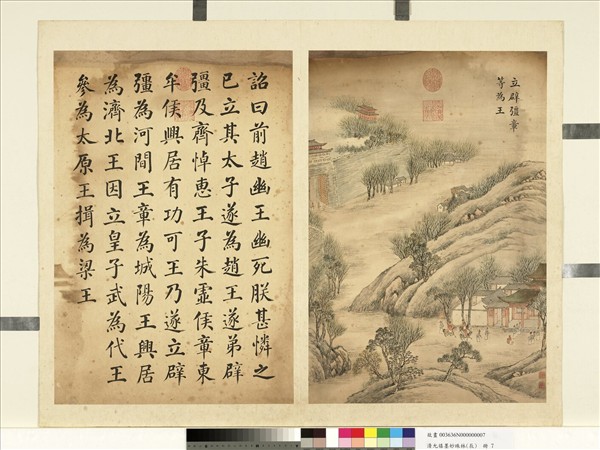 立辟彊章
等為王
詔曰前趙幽王幽死朕甚憐之
已立其太子遂為趙王遂弟辟
彊及齊悼惠王子朱虛侯章東
牟侯興居有功可王乃遂立辟
彊為河間王章為城陽王興居
為濟北王因立皇子武為代王
參為太原王揖為梁王
故畫 003636N000000007